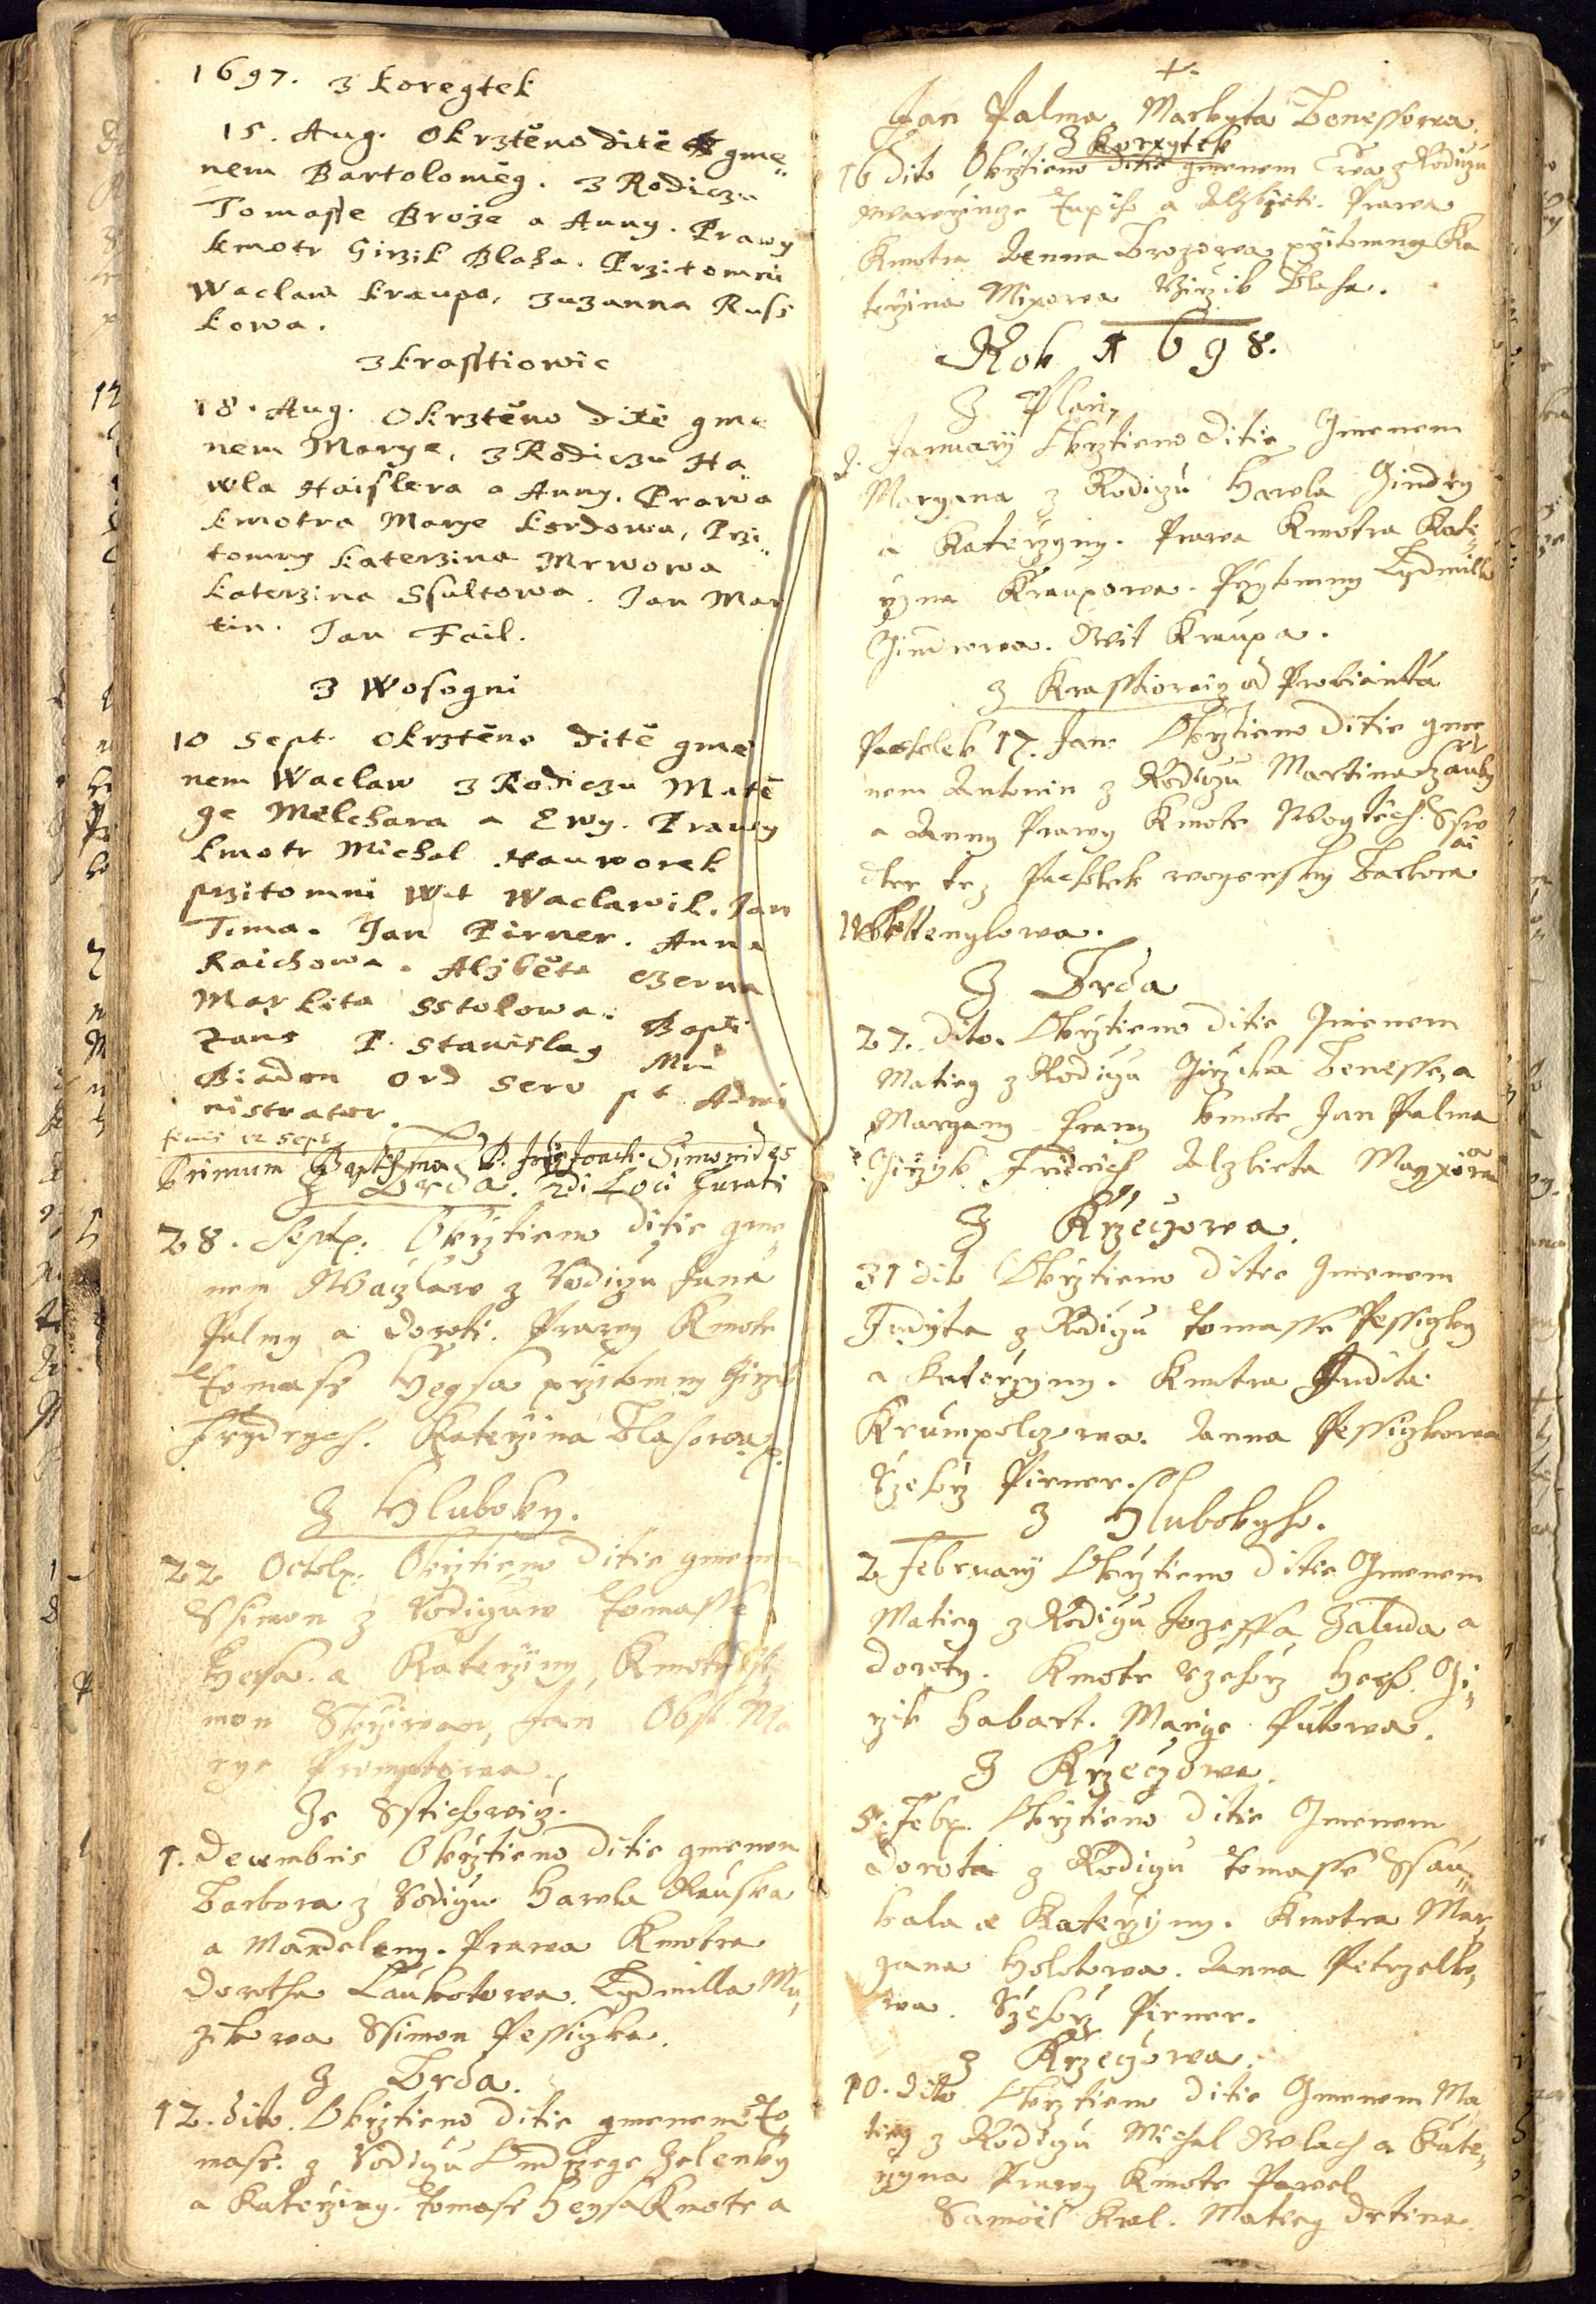 1697. z koregtek
15. Aug. Okrztěno ditě gme„
nem Bartoloměg. z Rodiczu
Tomasse Brože a Anny. Prawy
kmotr Girzik Blaha. Przitomni
Waclaw kraupa, Zuzanna Russ
kowa.
z krasstiowic
18. Aug. Okrztěno ditě gme
nem Marye, z Rodiczu Ha„
wla Haislera a Anny. Prawa
kmotra Marye kordowa, Przi„
tomny katerzina Mrwowa
katerzina Ssultowa. Jan Mar
tin. Jan Fail.
z Wosogni
10 Sept. Okrztěno ditě gme
nem Waclaw z Rodiczu Matě
ge Melchara a Ewy. Prawy
kmotr Michal Hauworek
przitomni Wit Waclawik. Jan
Tima. Jan Pirner. Anna
Raichowa. Alžběta czerna
Markita Sstolowa. Bapti
zans P. Stanislag Mra
Biadon Ord Serv pt Admi
nistrator.
12 Sept.
Primum Baptisma P. Joach. Simonides
Z Brda. Loci Curati
28. Sept: Okrztieno ditie gme„
nem Waczlaw z Rodiczu Jana
Palmy a Doroti. Prawy Kmotr
Tomass Hegsa przitomny Girzik
Frydrych. Katerzina Blahowa.
Z Hluboky.
22 Octob: Okrztieno ditie gmenem
Ssimon z Rodiczuw Tomasse
Hegsa a Katerziny, Kmotr Ssi
mon Skrziwan, Jan Obst. Ma
rye
Ze Sstichowicz.
1. Decembris Okrztieno ditie gmenem
Barbora z Rodiczu Hawla Rauska
a Mandaleny. Prawa Kmotra
Dorotha Laukotowa. Lydmilla Mu„
zikowa Ssimon Pessiczka.
Z Brda.
12. dito. Okrztieno ditie gmenem To
mass. z Rodiczu Ondrzege Zelenky
a Katerziny. Tomass Heysa Kmotr a
Jan Palma, Markyta Benessowa.
Z Korxytek
16 dito Okrztieno ditie gmenem Ewa z Rodiczu
Wawrzincze a Alzbieti. Prawa
Kmotra Anna Brozowa, przitomny Ka
terzina Mixowa Girzik Blaha.
Rok 1698.
Z Plan,
January Okrztieno ditie Gmenem
Maryana z Rodiczu Hawla Gindry
a Katerzyny. Prawa Kmotra Kate„
rzyna Kraupowa. Przytomny Lydmilla
Wit Kraupa.
z Krasstiowicz od Probianta
Pacholek 17. Jan: Okrztieno ditie gme
nem Antonin z Rodiczu Martina
a Anny Prawy Kmotr Wogtiech
tez Pacholek wogensky Barbora
Z Brda
27. dito. Okrztieno ditie Gmenem
Matieg z Rodiczu Girzika Benesse, a
Maryany Prawy Kmotr Jan Palma
Girzyk Fridrich Alzbieta
Z Krzeczowa.
31 dito Okrztieno ditie Gmenem
Judyta z Rodiczu Tomasse Pessiczky
a Katerzyny. Kmotra Judita
Krumpolczowa. Anna Pessiczkowa
Rzehorz Pirner.
z Hlubokyho.
2 February Okrztieno ditie Gmenem
Matieg z Rodiczu Jozeffa Zaluda a
Doroty. Kmotr Rzehorz Gi„
rzik Habart. Marige
Z Krzeczowa.
5. Feb. Okrztieno ditie Gmenem
Dorota z Rodiczu Tomasse Ssau„
kala a Katerzyny. Kmotra Mar„
yana Holotowa. Anna Petrzelko„
wa. Rzehorz Pirner.
z Krzeczowa.
10. dito Okrztieno ditie Gmenem Ma
tieg z Rodiczu Michal Wlach a Kate„
rzyna Prawy Kmotr Pawel
Samoil Kral. Matieg Drtina